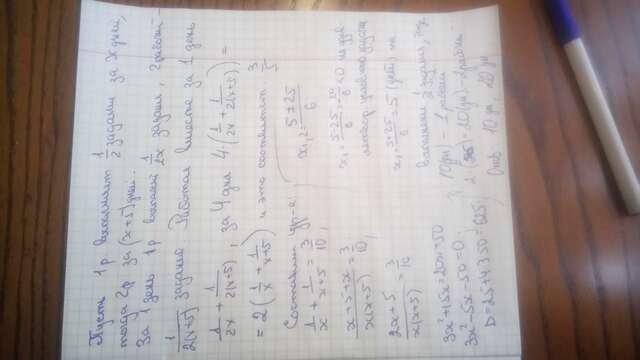 Пусть 1р выполнит 1/2 задания за x дней,
тогда 2р за (x+5) дней.
За 1 день 1р выполнит 1/2x задания, 2 рабочий -
1/2(x+5) задания. Работая вместе за 1 день
1/2x + 1/2(x+5), за 4 дня 4(1/2x + 1/2(x+5)) =
= 2(1/x + 1/x+5) и это составляет 3/5
Составим ур-е:
1/x + 1/x+5 = 3/10,
x+5+x/x(x+5) = 3/10,
2x+5/x(x+5) = 3/10
3x²+15x=20x+50
3x²-5x-50=0
D=25+4·3·50=625
x1,2= 5±25/6
x1= 5-25/6 = -20/6 <0 не удов
условию задачи
x1= 5+25/6 = 5 (дней) на
выполнение 1/2 задания,
10 дн - 1 рабочий
20 (дн) - 2 рабочий
Отв 10 дн 20 дн